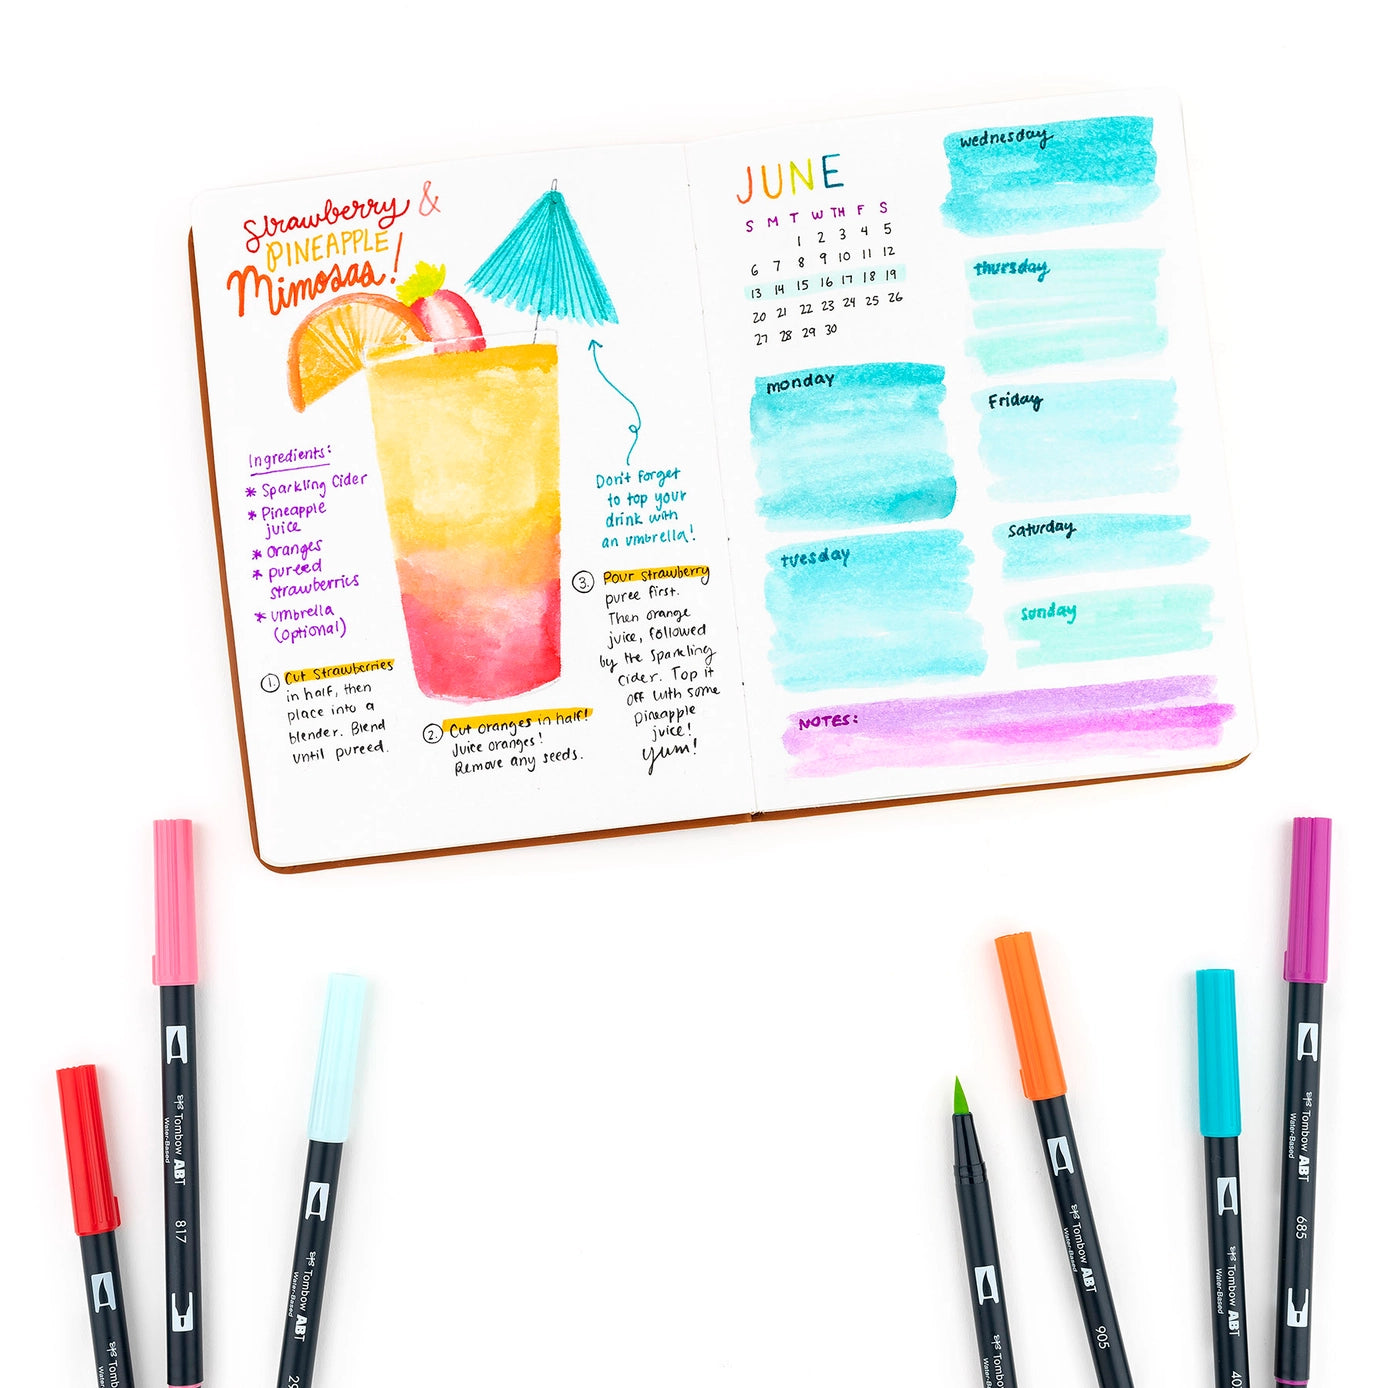 Strawberry &
PINEAPPLE
Mimosas!
Ingredients:
* Sparkling Cider
* Pineapple
juice
* Oranges
* pureed
strawberries
* umbrella
(optional)
1. Cut Strawberries
in half, then
place into a
blender. Blend
until pureed.
2. Cut oranges in half!
Juice oranges!
Remove any seeds.
Don't forget
to top your
drink with
an umbrella!
3. Pour strawberry
puree first.
Then orange
juice, followed
by the sparkling
cider. Top it
off with some
pineapple
juice!
yum!
JUNE
S M T W TH F S
1 2 3 4 5
6 7 8 9 10 11 12
13 14 15 16 17 18 19
20 21 22 23 24 25 26
27 28 29 30
monday
tuesday
wednesday
thursday
Friday
Saturday
Sunday
NOTES:
Tombow ABT
Water-Based
Tombow ABT
Water-Based
817
Tombow ABT
Water-Based
29
Tombow ABT
Water-Based
Tombow ABT
Water-Based
905
Tombow ABT
Water-Based
40
Tombow ABT
Water-Based
685